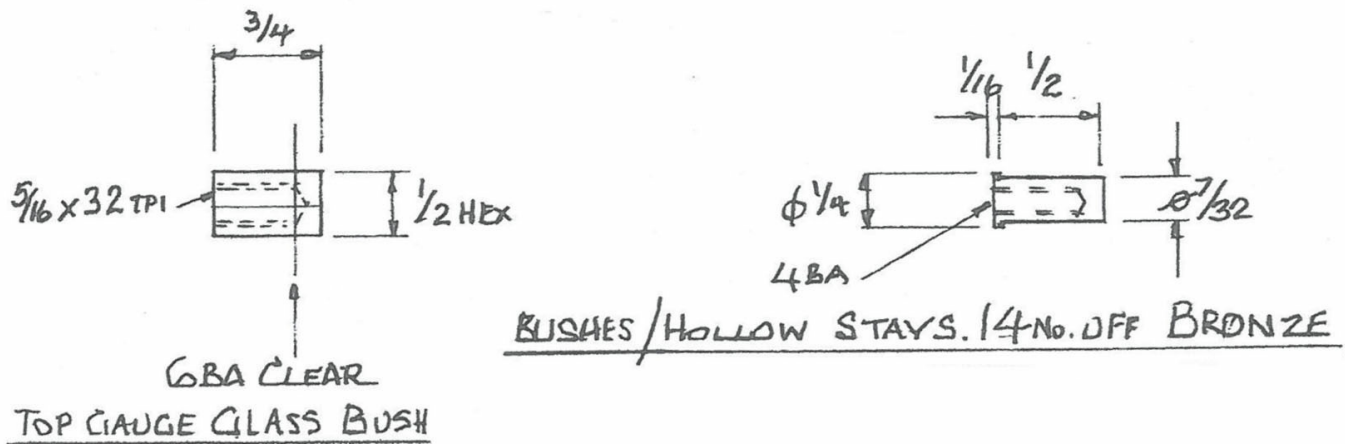 3/4
5/16 x 32 TPI
1/2 HEX
6BA CLEAR
TOP GAUGE GLASS BUSH
1/16 1/2
ϕ 1/4
ϕ 7/32
4BA
BUSHES/HOLLOW STAYS. 14 No. OFF BRONZE